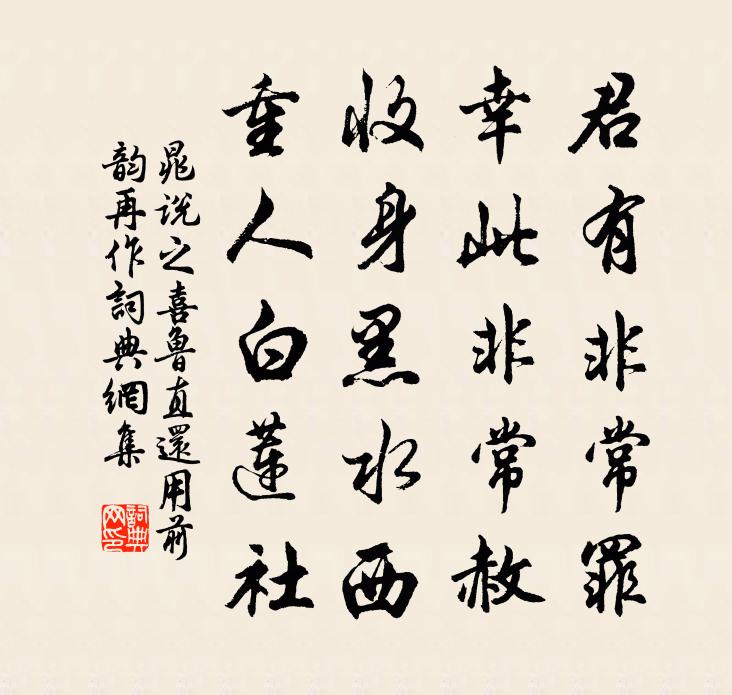 君有非常罪
幸此非常赦
收身黑水西
重人白蓮社
晁説之喜魯直還用前
韵再作詞典網集
詞典网印